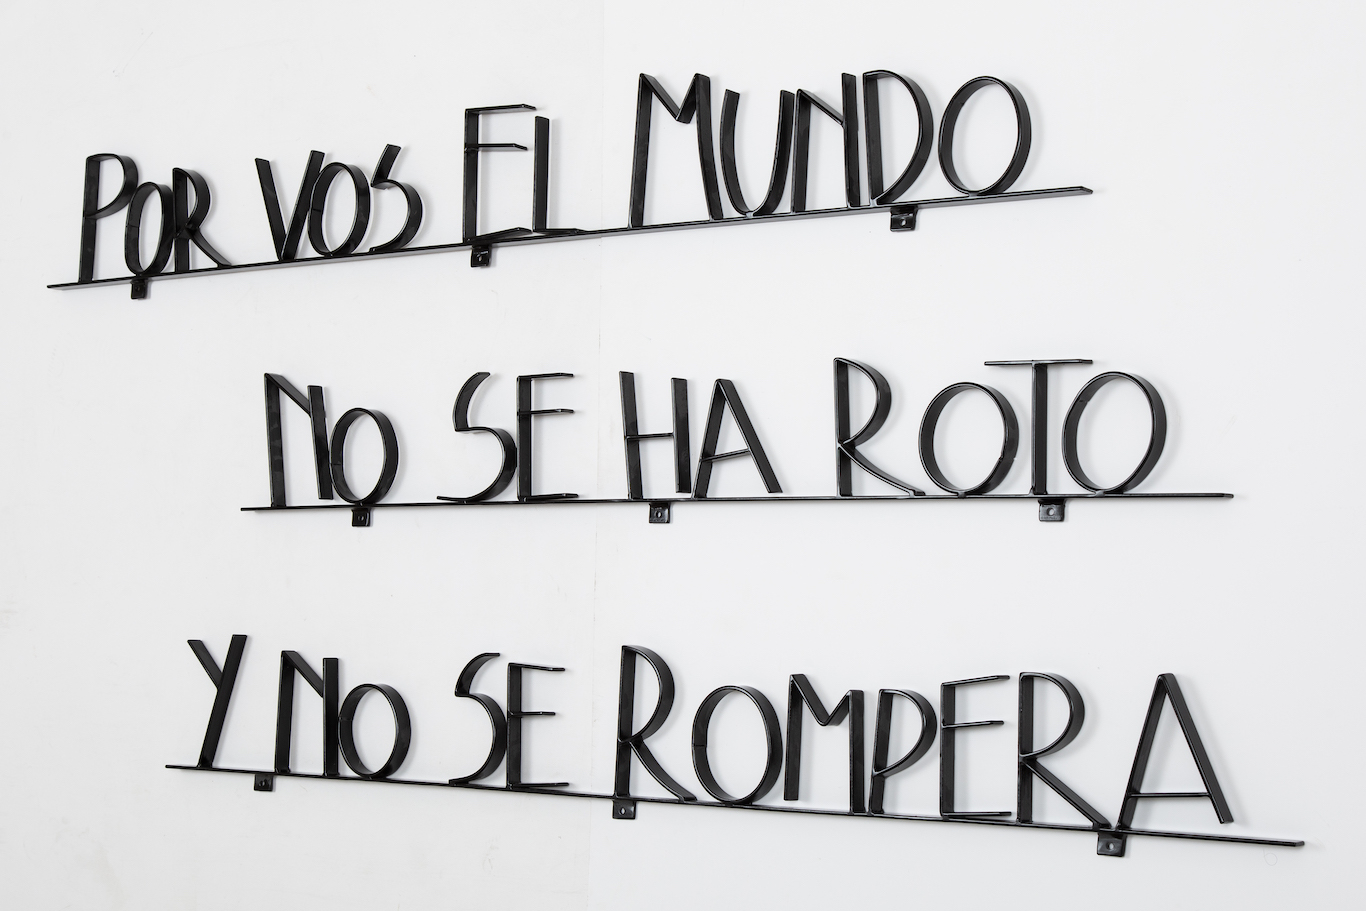 POR VOS EL MUNDO
NO SE HA ROTO
Y NO SE ROMPERA